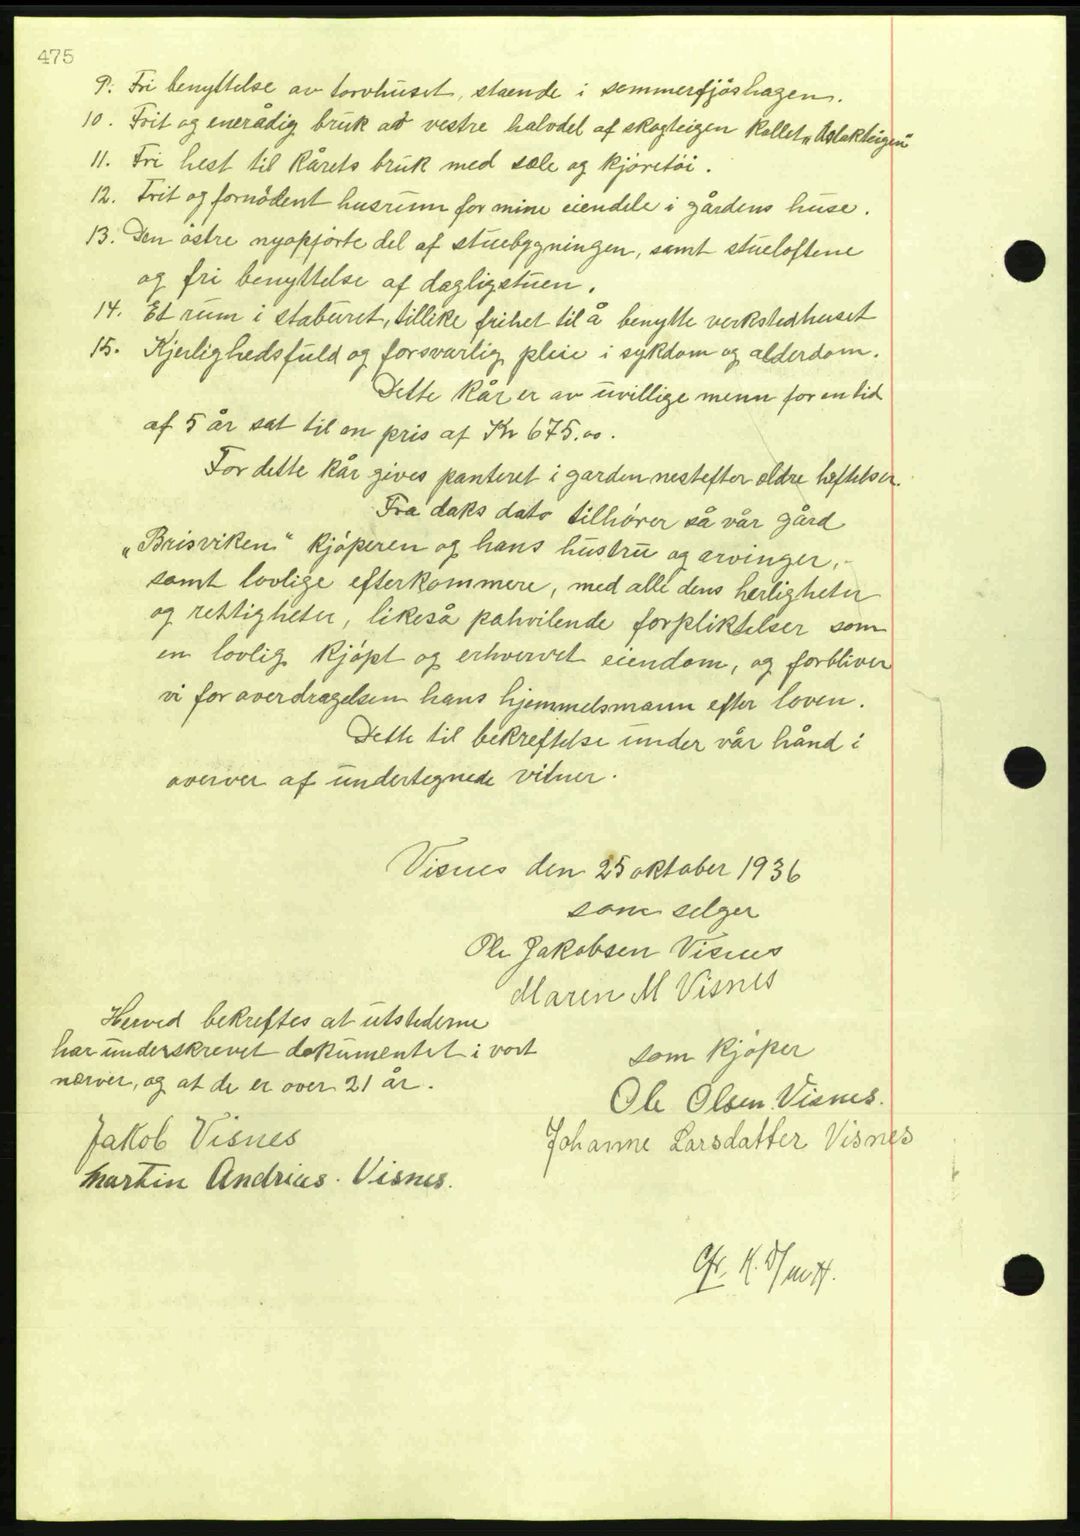 475
9. Fri benyttelse av torvhuset, stående i sommerfjøshagen.
10. Frit og enerådig bruk av vestre halvdel af skogteigen kallet „Aslakteigen“
11. Fri hest til kårets bruk med sele og kjøretøi.
12. Frit og fornødent husrum for mine eiendele i gårdens huse.
13. Den østre nyopførte del af stuebygningen, samt stueloftene
og fri benyttelse af dagligstuen.
14. Et rum i staburet, tillike frihet til å benytte verkstedhuset
15. Kjerlighedsfuld og forsvarlig pleie i sykdom og alderdom.
Dette kår er av uvillige menn for en tid
af 5 år sat til en pris af Kr 675.00.
For dette kår gives panteret i garden nestefter eldre heftelser.
Fra daks dato tilhører så vår gård
„Brisviken“ kjøperen og hans hustru og arvinger,
samt lovlige efterkommere, med alle dens herligheter
og rettigheter, likeså pahvilende forpliktelser som
en lovlig kjøpt og erhvervet eiendom, og forbliver
vi for overdragelsen hans hjemmelsmann efter loven.
Dette til bekreftelse under vår hånd i
overver af undertegnede vitner.
Visnes den 25 oktober 1936
som selger
Ole Jakobsen Visnes
Maren M Visnes
Herved bekreftes at utstederne
har underskrevet dokumentet i vort
nerver, og at de er over 21 år.
Jakob Visnes
Martin Andrias Visnes.
som kjøper
Ole Olsen Visnes.
Johanne Larsdatter Visnes
Cfr. K.